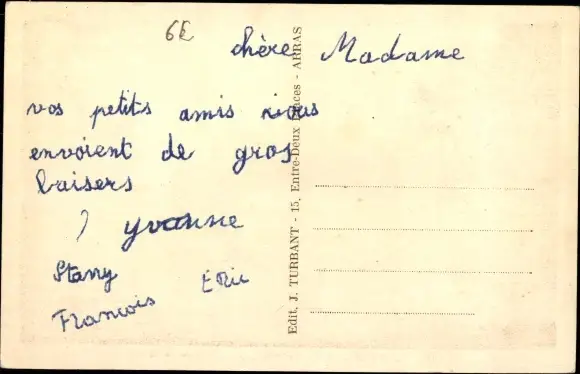 6E
chère Madame
vos petits amis nous
envoient de gros
baisers
yvonne
Stany
Eric
François
Edit. J. TURBANT - 15, Entre-Deux Places - ARRAS